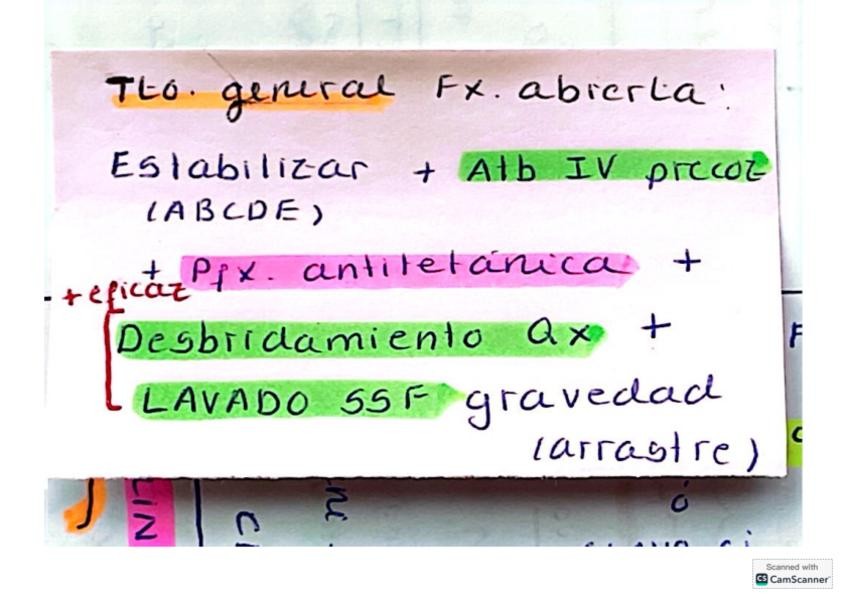 Tto. general Fx. abierta:
Estabilizar + Atb IV precoz
(ABCDE)
+ Pfx. antitetánica +
+ eficaz
Desbridamiento Qx +
LAVADO SSF gravedad
(arrastre)
Scanned with
CS CamScanner